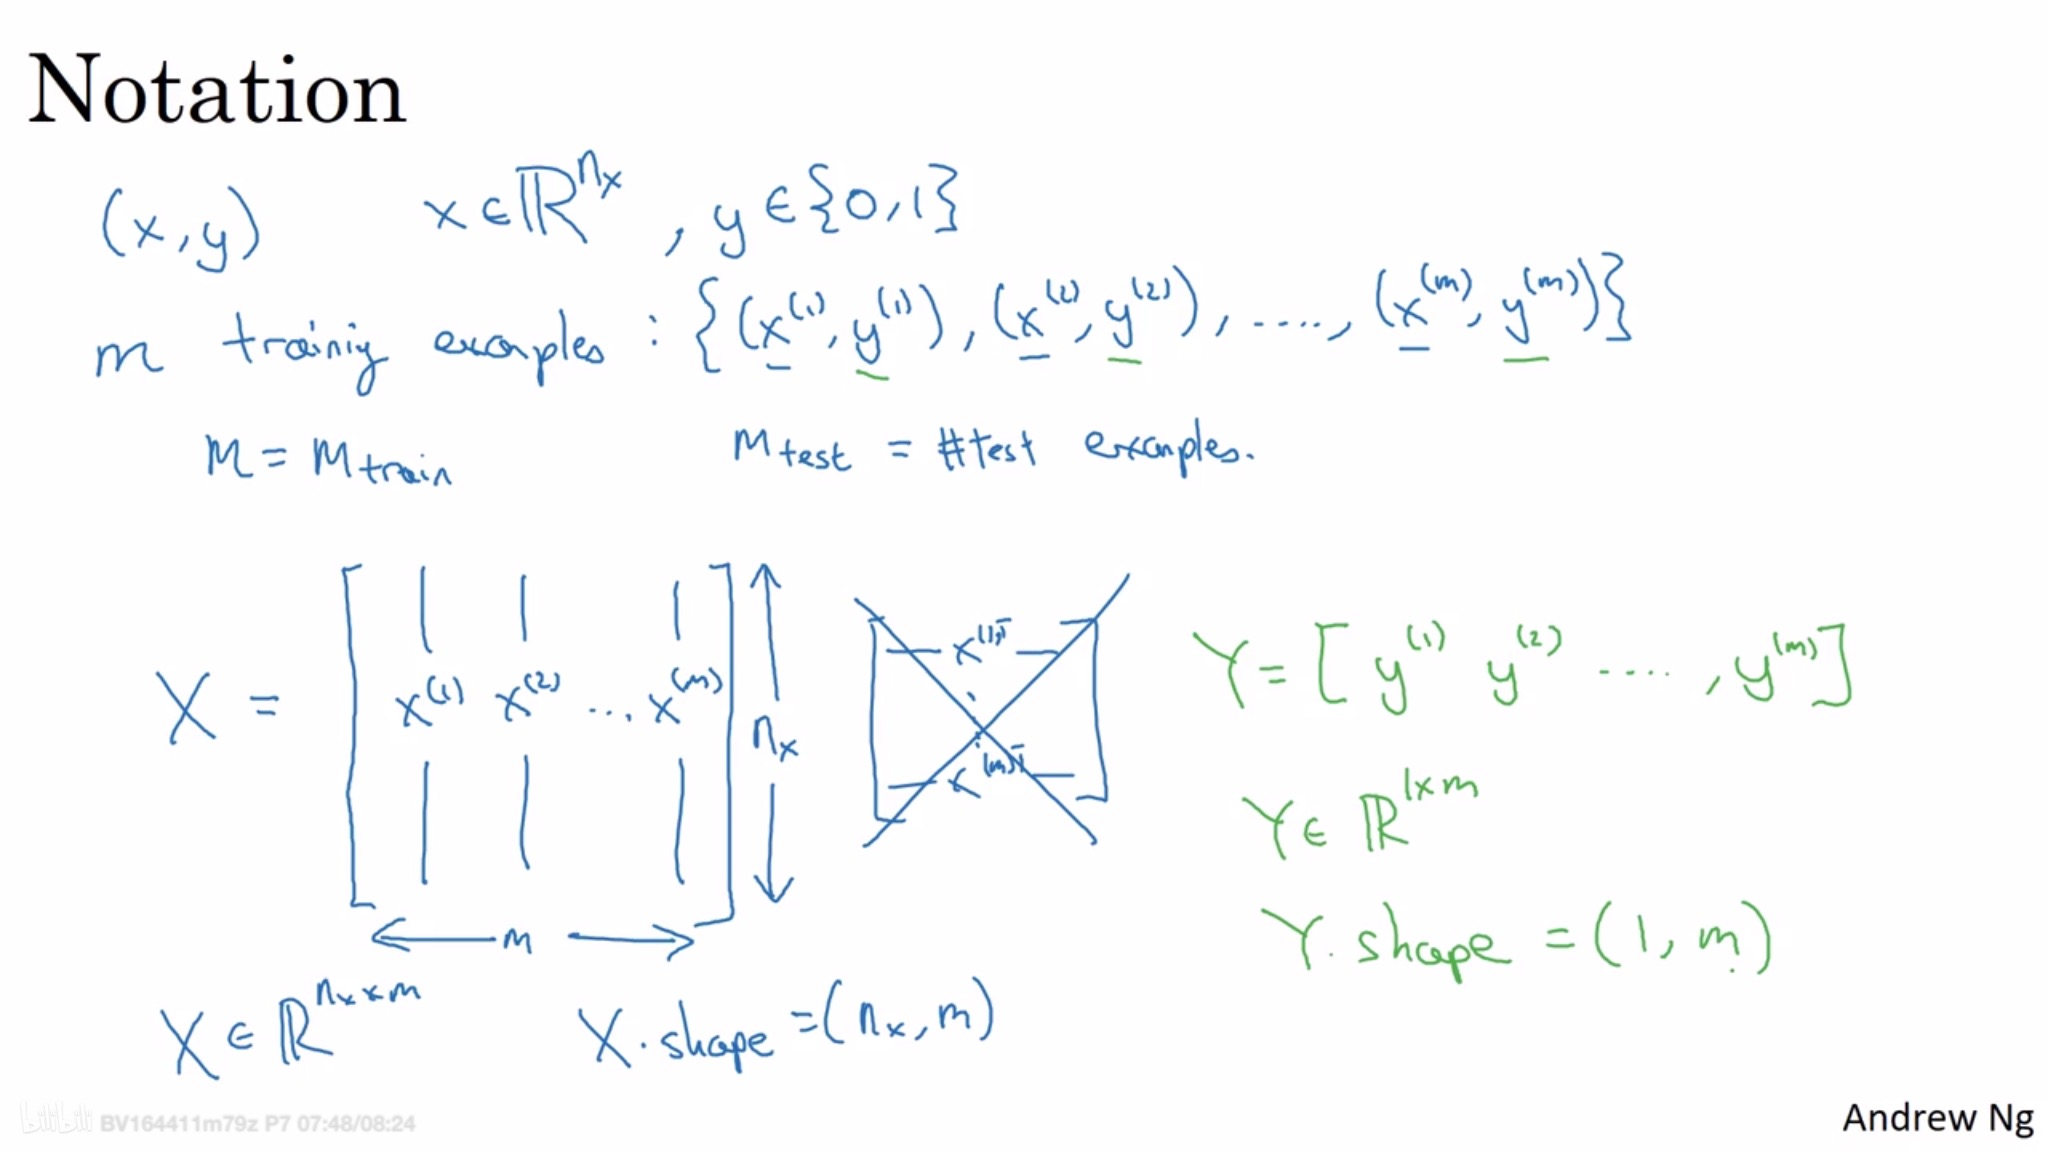 Notation
(x,y) x∈ℝ^{n_x}, y∈{0,1}
m training examples : {(x^{(1)}, y^{(1)}), (x^{(2)}, y^{(2)}), ...., (x^{(m)}, y^{(m)})}
M = M_{train} M_{test} = #test examples.
X = [x^{(1)} x^{(2)} ... x^{(m)}] n_x
m
x^{(1)T}
⋮
x^{(m)T}
Y = [y^{(1)} y^{(2)} ...., y^{(m)}]
Y ∈ ℝ^{1×m}
Y.shape = (1, m)
X ∈ ℝ^{n_x×m} X.shape = (n_x, m)
bilibili BV164411m79z P7 07:48/08:24
Andrew Ng